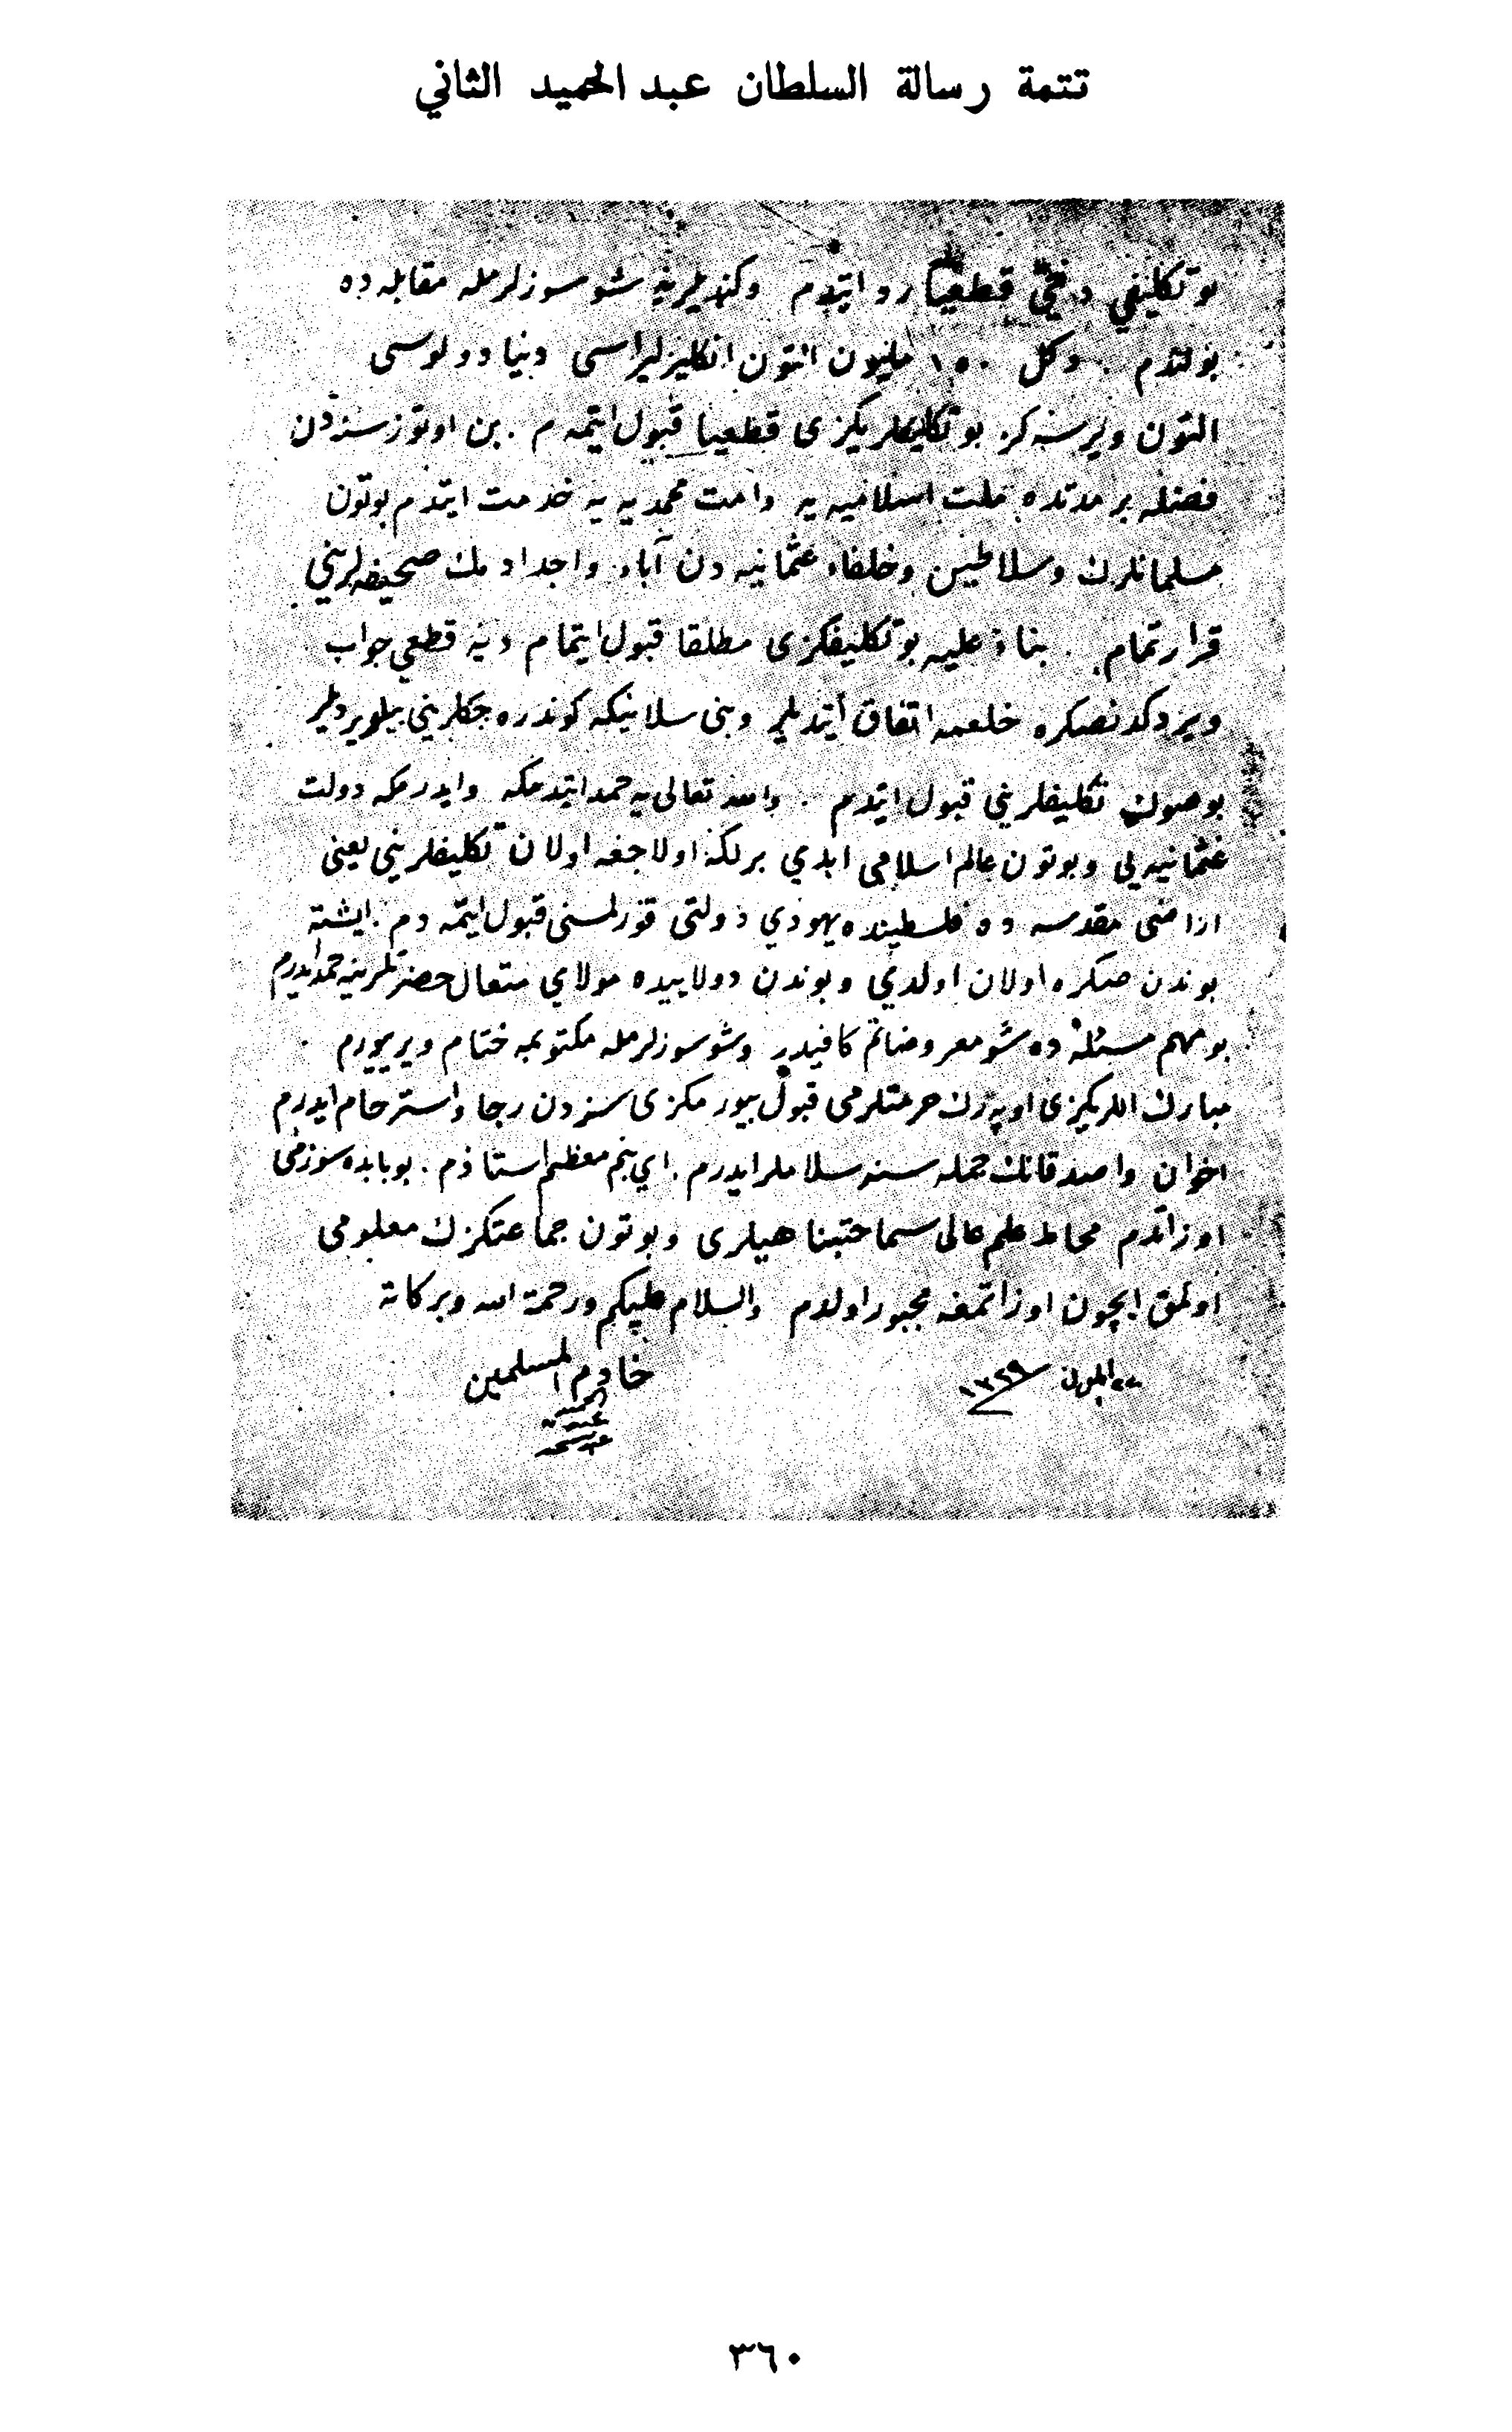 تتمة رسالة السلطان عبد الحميد الثاني
بو تكليفي دخي قطعيا رد ايتدم وكنديلرينه شو سوزلرمله مقابله ده
بولندم . دكل ١٥٠ مليون التون انكليز ليراسى دنيا دولوسى
التون ويرسه كز بو تكليفلريكزى قطعيا قبول ايتمه م . بن اوتوز سنه دن
فضله بر مدتده ملت اسلاميه يه وامت محمديه يه خدمت ايتدم بوتون
مسلمانلرك وسلاطين وخلفاء عثمانيه دن آباء واجدادمك صحيفه لريني
قرارتمام . بناء عليه بو تكليفكزى مطلقا قبول ايتمام ديه قطعي جواب
ويردكدنصكره خلعمه اتفاق ايتديلر وبنى سلانيكه كوندره جكلريني بيلديرديلر
بو صوك تكليفلريني قبول ايتدم . والله تعالى يه حمد ايتدمكه وايدرمكه دولت
عثمانيه يى وبوتون عالم اسلامى ابدي بر لكه اولاجغه اولان تكليفلريني يعنى
اراضى مقدسه ده فلسطينده يهودي دولتى قورلمسنى قبول ايتمه دم . ايشته
بوندن صكره اولان اولدي وبوندن دولاييده مولاي متعال حضرتلرينه حمد ايدرم
بو مهم مسئله ده شو معروضاتم كافيدر وشو سوزلرمله مكتوبمه ختام ويرييورم .
مبارك اللريكزى اوپه رك حرمتلرمى قبول بيورمكزى سزدن رجا واسترحام ايدرم
اخوان واصدقانك جمله سنه سلاملر ايدرم . اي بنم معظم استاذم . بو بابده سوزمى
اوزاتدم محاط علم عالى سماحتپناهيلرى وبوتون جماعتكزك معلومى
اولمق ايچون اوزاتمغه مجبور اولدم والسلام عليكم ورحمة الله وبركاته
ايلول ١٣٢٩
خادم المسلمين
٣٦٠